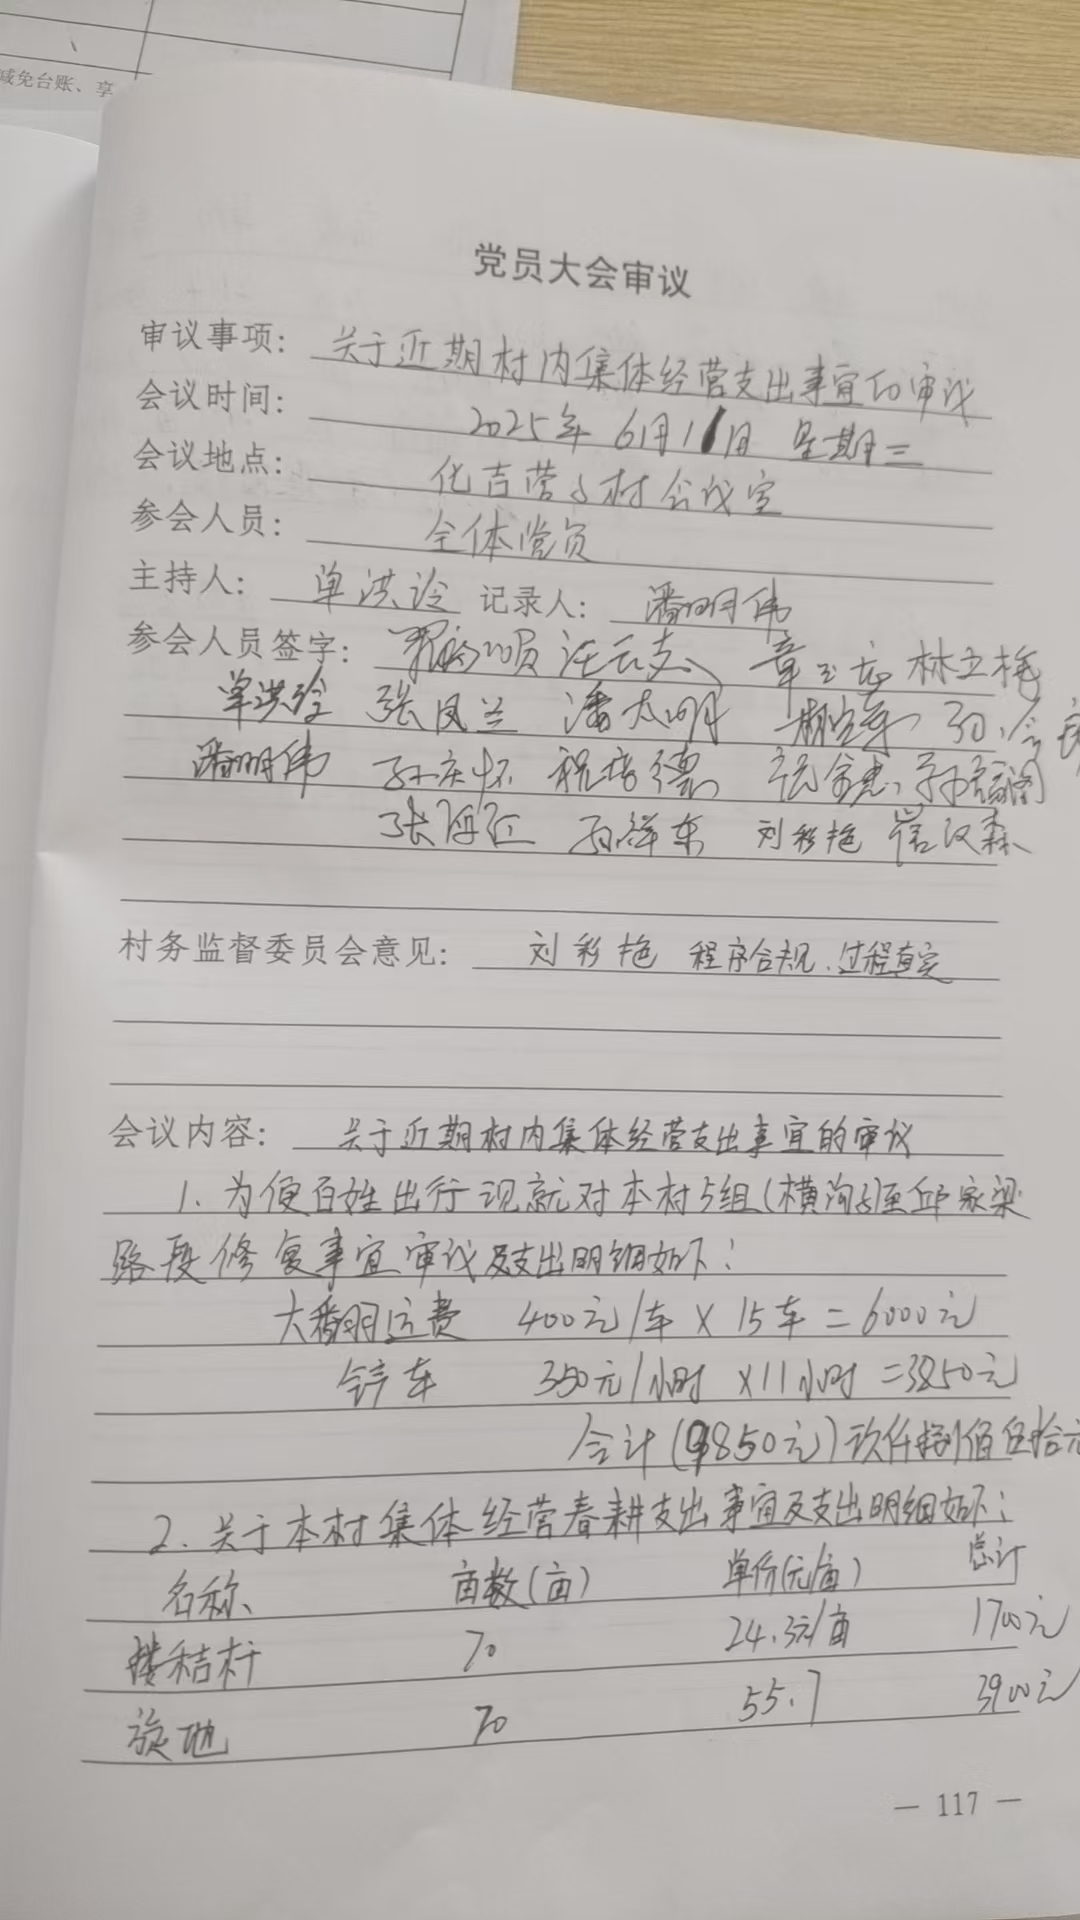 减免台账、享
党员大会审议
审议事项: 关于近期村内集体经营支出事宜的审议
会议时间: 2025年6月11日 星期三
会议地点: 化吉营子村会议室
参会人员: 全体党员
主持人: 单洪玲 记录人: 潘明伟
参会人员签字: 林立艳
单洪玲 张凤兰 潘太明
潘明伟 孙庆怀 祝培德
孙祥东 刘彩艳 崔汉森
村务监督委员会意见: 刘彩艳 程序合规、过程真实
会议内容: 关于近期村内集体经营支出事宜的审议
1. 为便百姓出行现就对本村5组(横沟子至邱家梁
路段修复事宜审议及支出明细如下:
大翻运费 400元/车×15车=6000元
铲车 350元/小时×11小时=3850元
合计(9850元)玖仟捌佰伍拾元
2. 关于本村集体经营春耕支出事宜及支出明细如下:
名称 亩数(亩) 单价(元/亩) 总计
搂秸秆 70 24.3元/亩 1700元
旋地 70 55.7 3900元
— 117 —